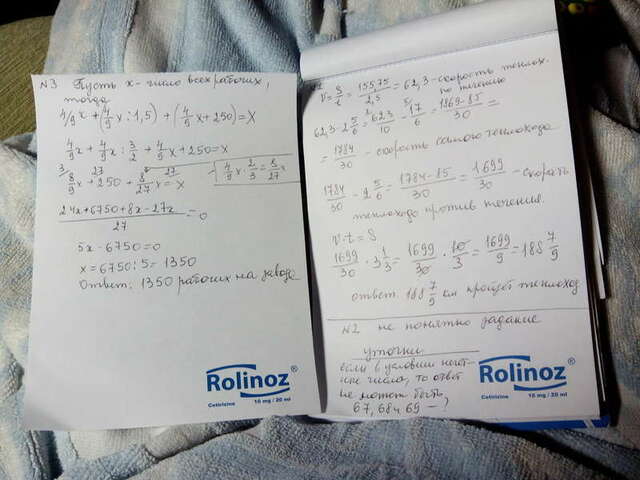 N3 Пусть x - число всех рабочих,
тогда
4/9 x + (4/9 x : 1,5) + (4/9 x + 250) = x
4/9 x + 4/9 x : 3/2 + 4/9 x + 250 = x
8/9 x + 250 + 8/27 x = x
4/9 x · 2/3 = 8/27 x
24x + 6750 + 8x - 27x / 27 = 0
5x - 6750 = 0
x = 6750 : 5 = 1350
Ответ: 1350 рабочих на заводе
Rolinoz®
Cetirizine 10 mg / 20 ml
V = S/t = 155,75/2,5 = 62,3 - скорость теплох.
по течению
62,3 - 2 5/6 = 623/10 - 17/6 = 1869-85/30 =
= 1784/30 - скорость самого теплохода
1784/30 - 2 5/6 = 1784-85/30 = 1699/30 - скорость
теплохода против течения.
v·t = S
1699/30 · 3 1/3 = 1699/30 · 10/3 = 1699/9 = 188 7/9
ответ 188 7/9 км пройдет теплоход
N2 не понятно задание
уточни.
если в условии
число, то ответ
не может быть
67, 68 и 69 - ?
Rolinoz®
Cetirizine 10 mg / 20 ml